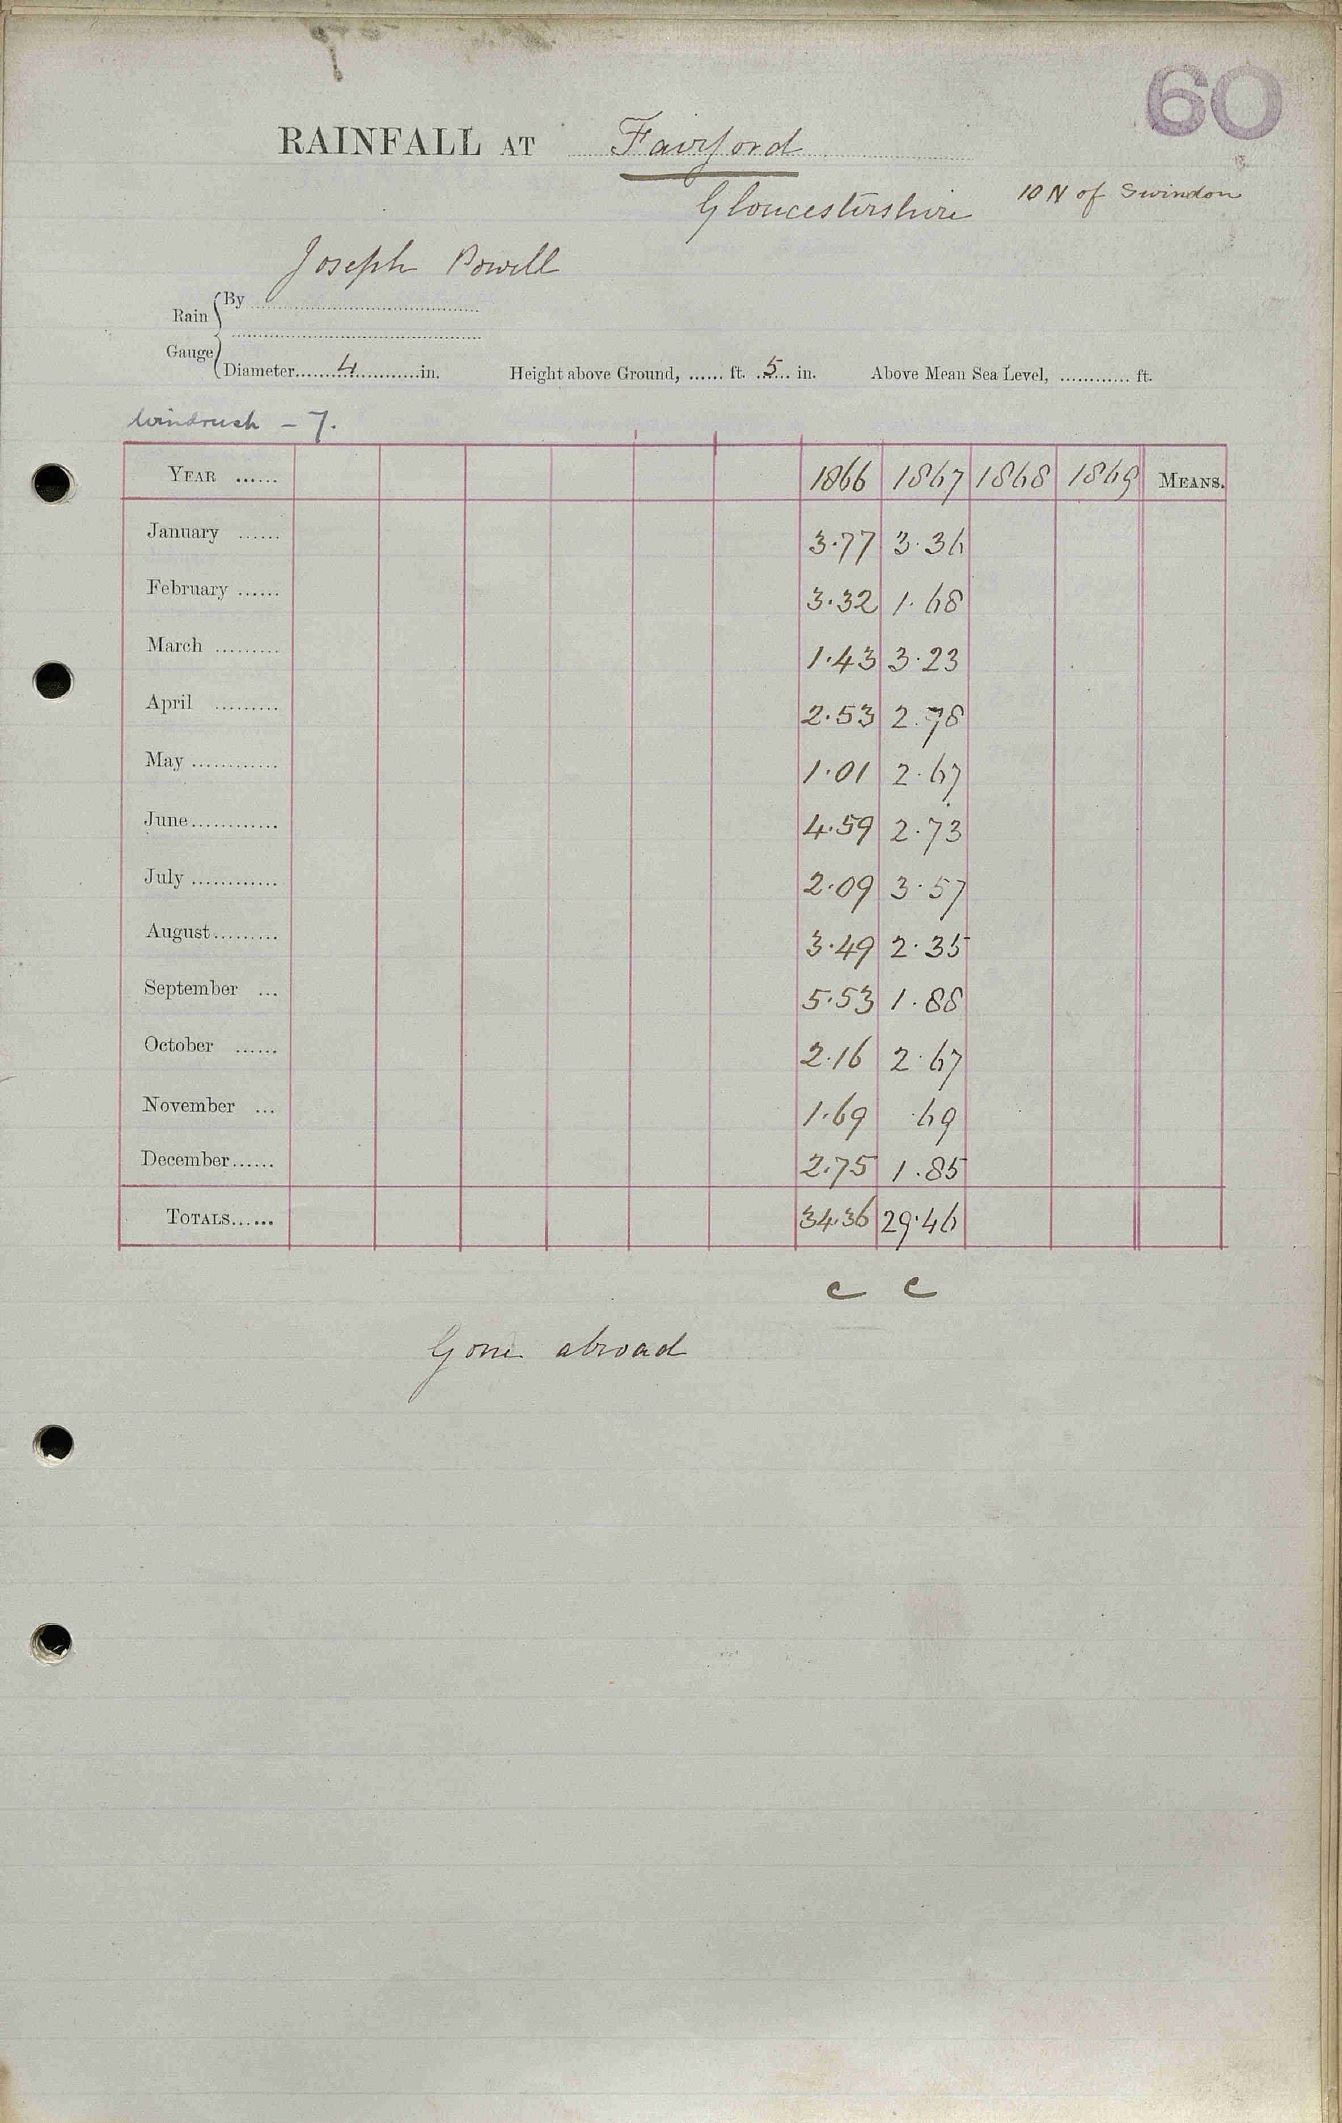 60
RAINFALL AT Fairford
Gloucestershire 10 N of Swindon
Joseph Powell
Rain Gauge { By
Diameter 4 in. Height above Ground, ...... ft. 5 in. Above Mean Sea Level, ............ ft.
Windrush – 7.
YEAR ...... 1866 1867 1868 1869 MEANS.
January ...... 3.77 3.36
February ...... 3.32 1.68
March ......... 1.43 3.23
April ......... 2.53 2.78
May ............ 1.01 2.67
June ............ 4.59 2.73
July ............ 2.09 3.57
August ......... 3.49 2.35
September ... 5.53 1.88
October ...... 2.16 2.67
November ... 1.69 .69
December ...... 2.75 1.85
TOTALS ...... 34.36 29.46
c c
Gone abroad